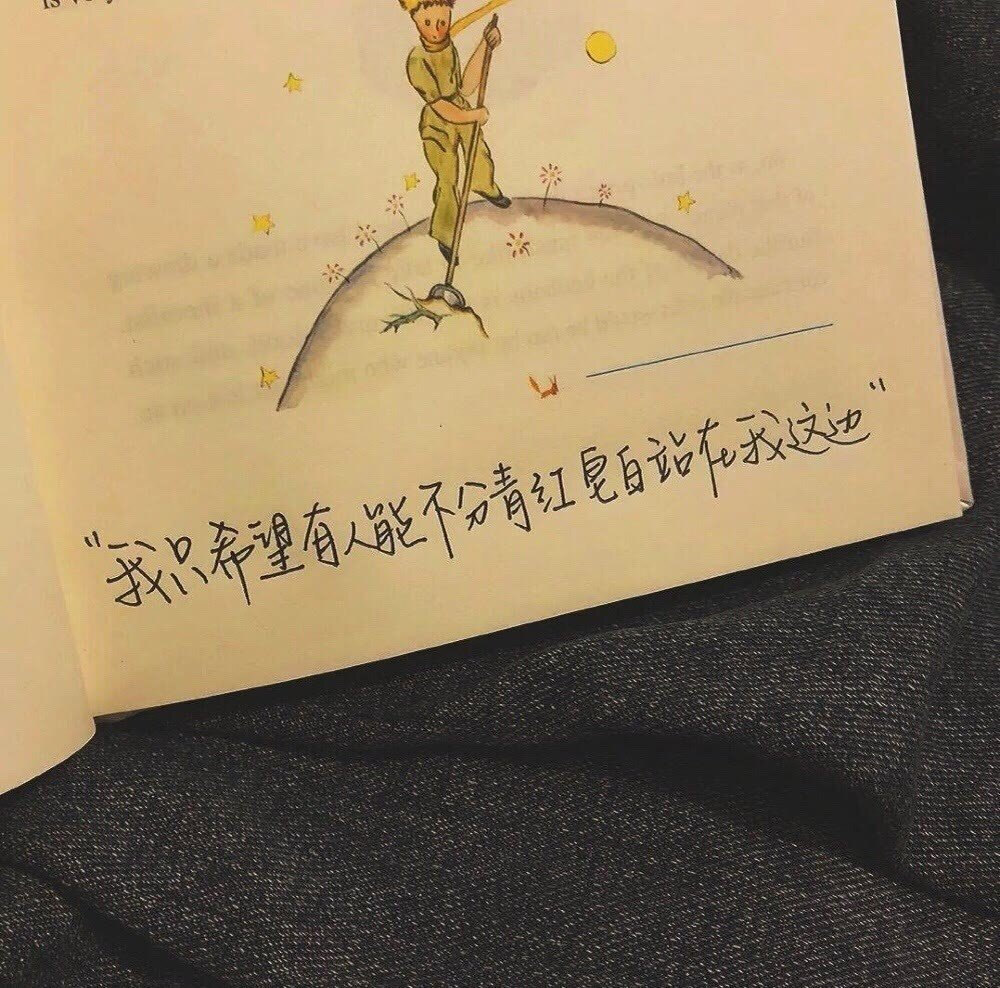 is ve
"我只希望有人能不分青红皂白站在我这边"